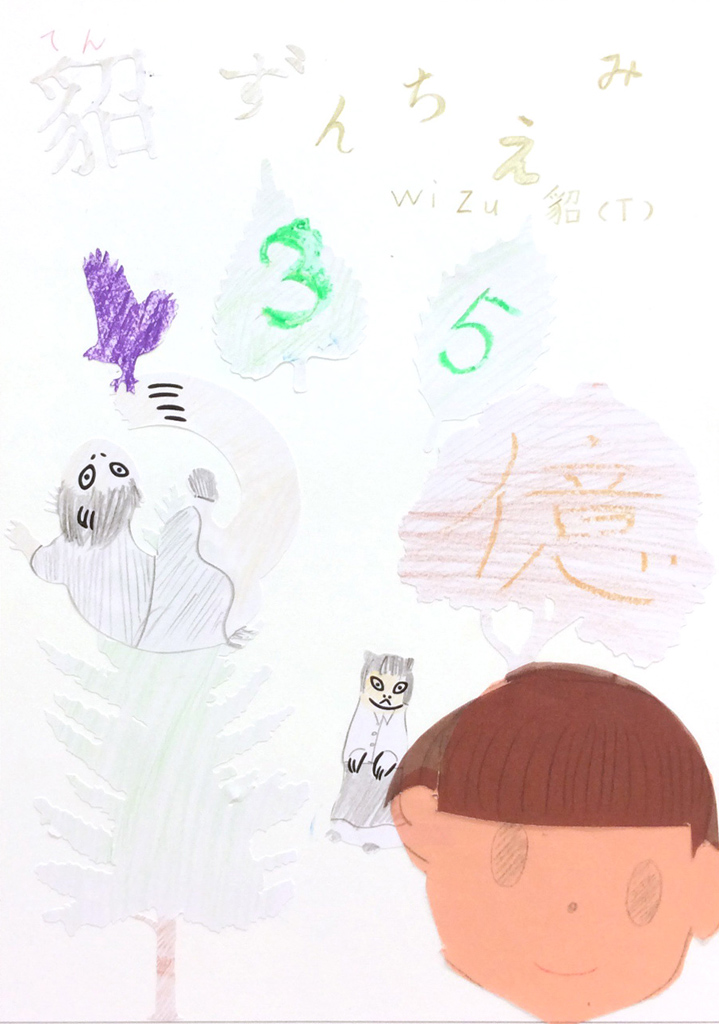 てん
貂ずんちえみ
wizu 貂(T)
35
億